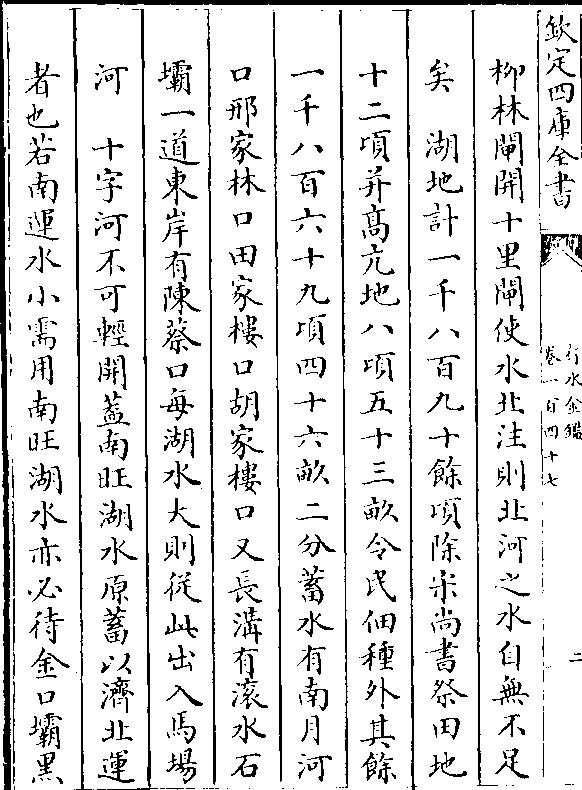 欽定四庫全書
行水金鑑
卷一百四十七
二
柳林閘開十里閘使水北注則北河之水自無不足
矣　湖地計一千八百九十餘頃除宋尚書祭田地
十二頃并髙亢地八頃五十三畝令民佃種外其餘
一千八百六十九頃四十六畝二分蓄水有南月河
口邢家林口田家樓口胡家樓口又長溝有滚水石
壩一道東岸有陳蔡口每湖水大則從此出入馬場
河　十字河不可輕開葢南旺湖水原蓄以濟北運
者也若南運水小需用南旺湖水亦必待金口壩黒